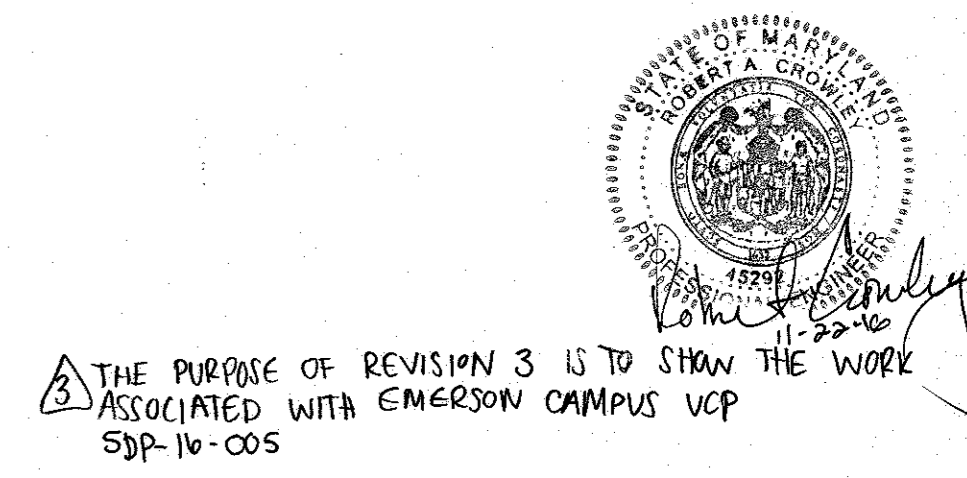 STATE OF MARYLAND
ROBERT A. CROWLEY
PROFESSIONAL ENGINEER
Robert A Crowley
11-22-16
3 THE PURPOSE OF REVISION 3 IS TO SHOW THE WORK
ASSOCIATED WITH EMERSON CAMPUS VCP
SDP-16-005